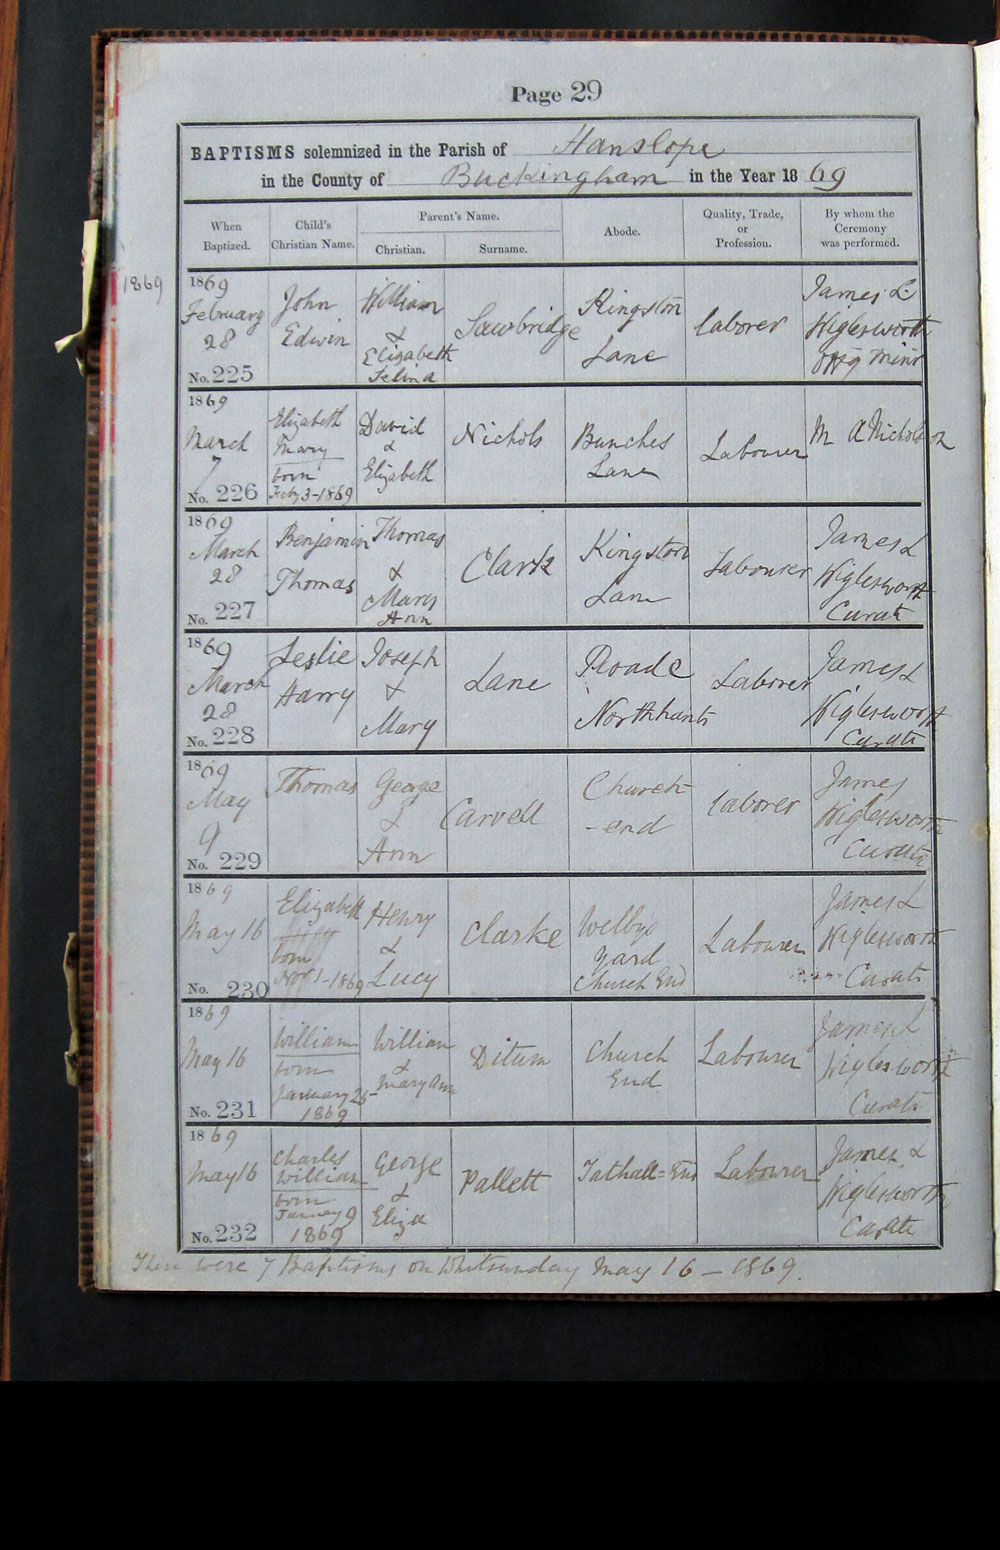 Page 29
BAPTISMS solemnized in the Parish of Hanslope
in the County of Buckingham in the Year 1869
When Baptized.
Child's Christian Name.
Parent's Name.
Christian.
Surname.
Abode.
Quality, Trade, or Profession.
By whom the Ceremony was performed.
1869
1869
February
28
No. 225
John
Edwin
William
&
Elizabeth
Selina
Sawbridge
Kingston
Lane
laborer
James L
Wiglesworth
Offg Minr
1869
March
7
No. 226
Elizabeth
Mary
born
Feby 3-1869
David
&
Elizabeth
Nichols
Bunches
Lane
Labourer
M A Nicholson
1869
March
28
No. 227
Benjamin
Thomas
Thomas
&
Mary
Ann
Clark
Kingston
Lane
Labourer
James L
Wiglesworth
Curate
1869
March
28
No. 228
Leslie
Harry
Joseph
&
Mary
Lane
Roade
Northhants
Laborer
James L
Wiglesworth
Curate
1869
May
9
No. 229
Thomas
George
&
Ann
Carvell
Church
-end
laborer
James
Wiglesworth
Curate
1869
May 16
No. 230
Elizabeth
born
1-1869
Henry
&
Lucy
Clarke
Welbys
Yard
Church End
Labourer
James L
Wiglesworth
Curate
1869
May 16
No. 231
William
born
January 25-
1869
William
&
Mary Ann
Ditum
Church
End
Labourer
James L
Wiglesworth
Curate
1869
May 16
No. 232
Charles
William
born
January 9
1869
George
&
Eliza
Pallett
Tathall=End
Labourer
James L
Wiglesworth
Curate
There were 7 Baptisms on Whitsunday May 16 - 1869.